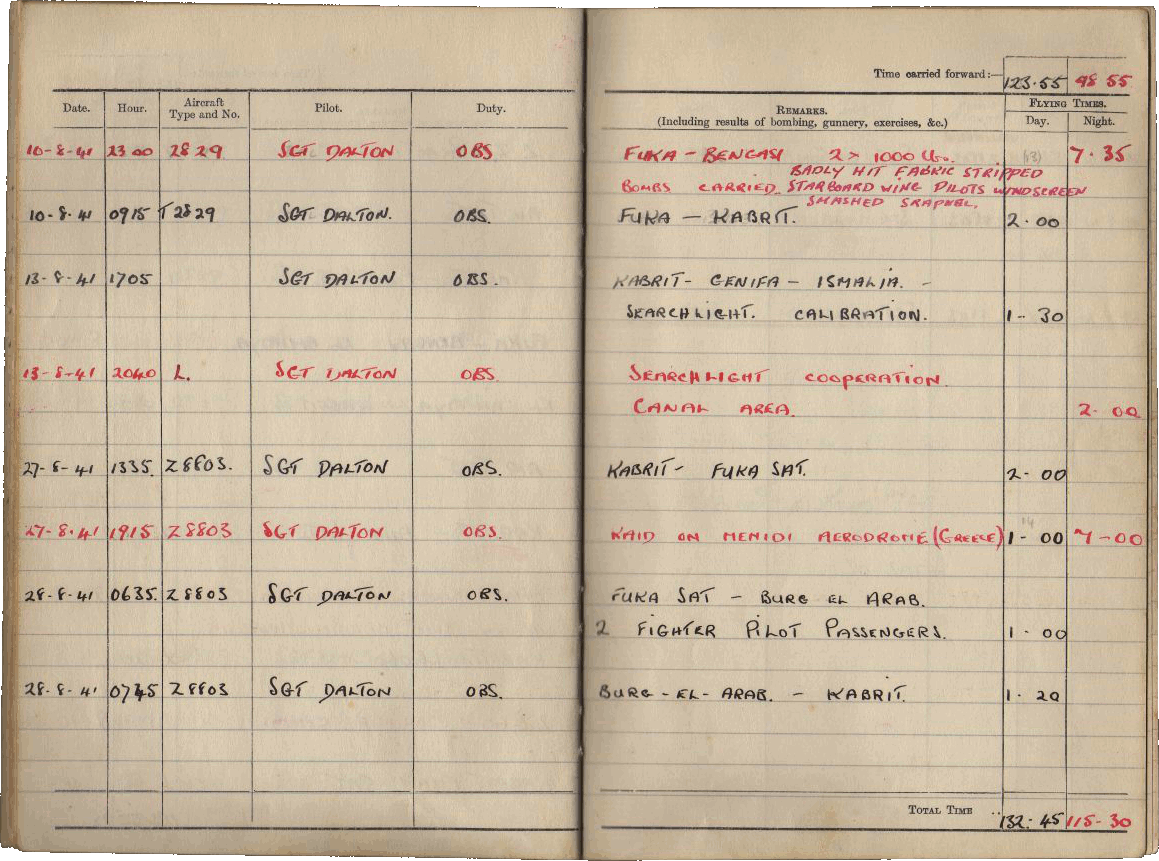 Time carried forward:— 123·55 98 55
Date. Hour. Aircraft Type and No. Pilot. Duty. REMARKS. (Including results of bombing, gunnery, exercises, &c.) FLYING TIMES. Day. Night.
10-8-41 2300 2829 SGT DALTON OBS FUKA - BENGASI 2 > 1000 Lb. (3) 7·35
BADLY HIT FABRIC STRIPPED
BOMBS CARRIED. STARBOARD WING PILOTS WINDSCREEN
SMASHED SRAPNEL.
10-8-41 0915 T2829 SGT DALTON. OBS. FUKA — KABRIT. 2·00
13-8-41 1705 SGT DALTON OBS. KABRIT- GENIFA — ISMALIA. -
SEARCHLIGHT. CALIBRATION. 1-30
13-8-41 2040 L. SGT DALTON OBS. SEARCHLIGHT COOPERATION.
CANAL AREA. 2-00
27-8-41 1335. Z8803. SGT DALTON OBS. KABRIT- FUKA SAT. 2-00
27-8-41 1915 Z8803 SGT DALTON OBS. RAID ON MENIDI AERODROME (GREECE) 14 1-00 7-00
28-8-41 0635. Z8803 SGT DALTON OBS. FUKA SAT - BURG EL ARAB.
2 FIGHTER PILOT PASSENGERS. 1·00
28-8-41 0745 Z8803 SGT DALTON OBS. BURG-EL-ARAB. - KABRIT. 1·20
TOTAL TIME .. 132·45 115-30